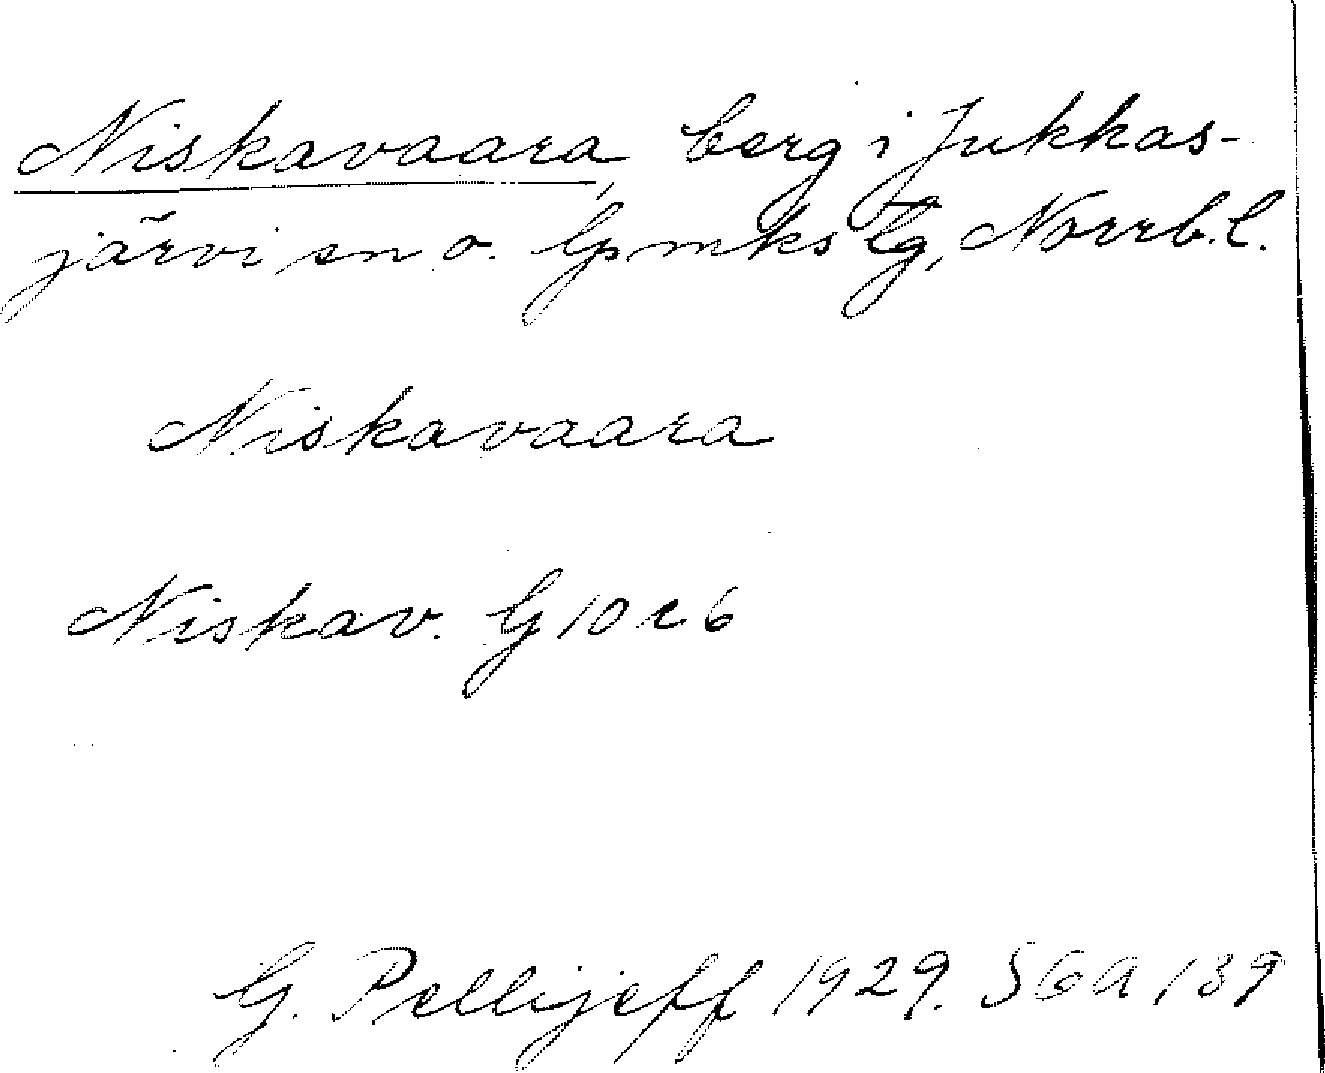 Niskavaara, berg i Jukkas-
järvi sn o. lpmks tg, Norrb. l.
Niskavaara
Niskav. G 10 c 6
G. Pellijeff 1929. S 6 a 139